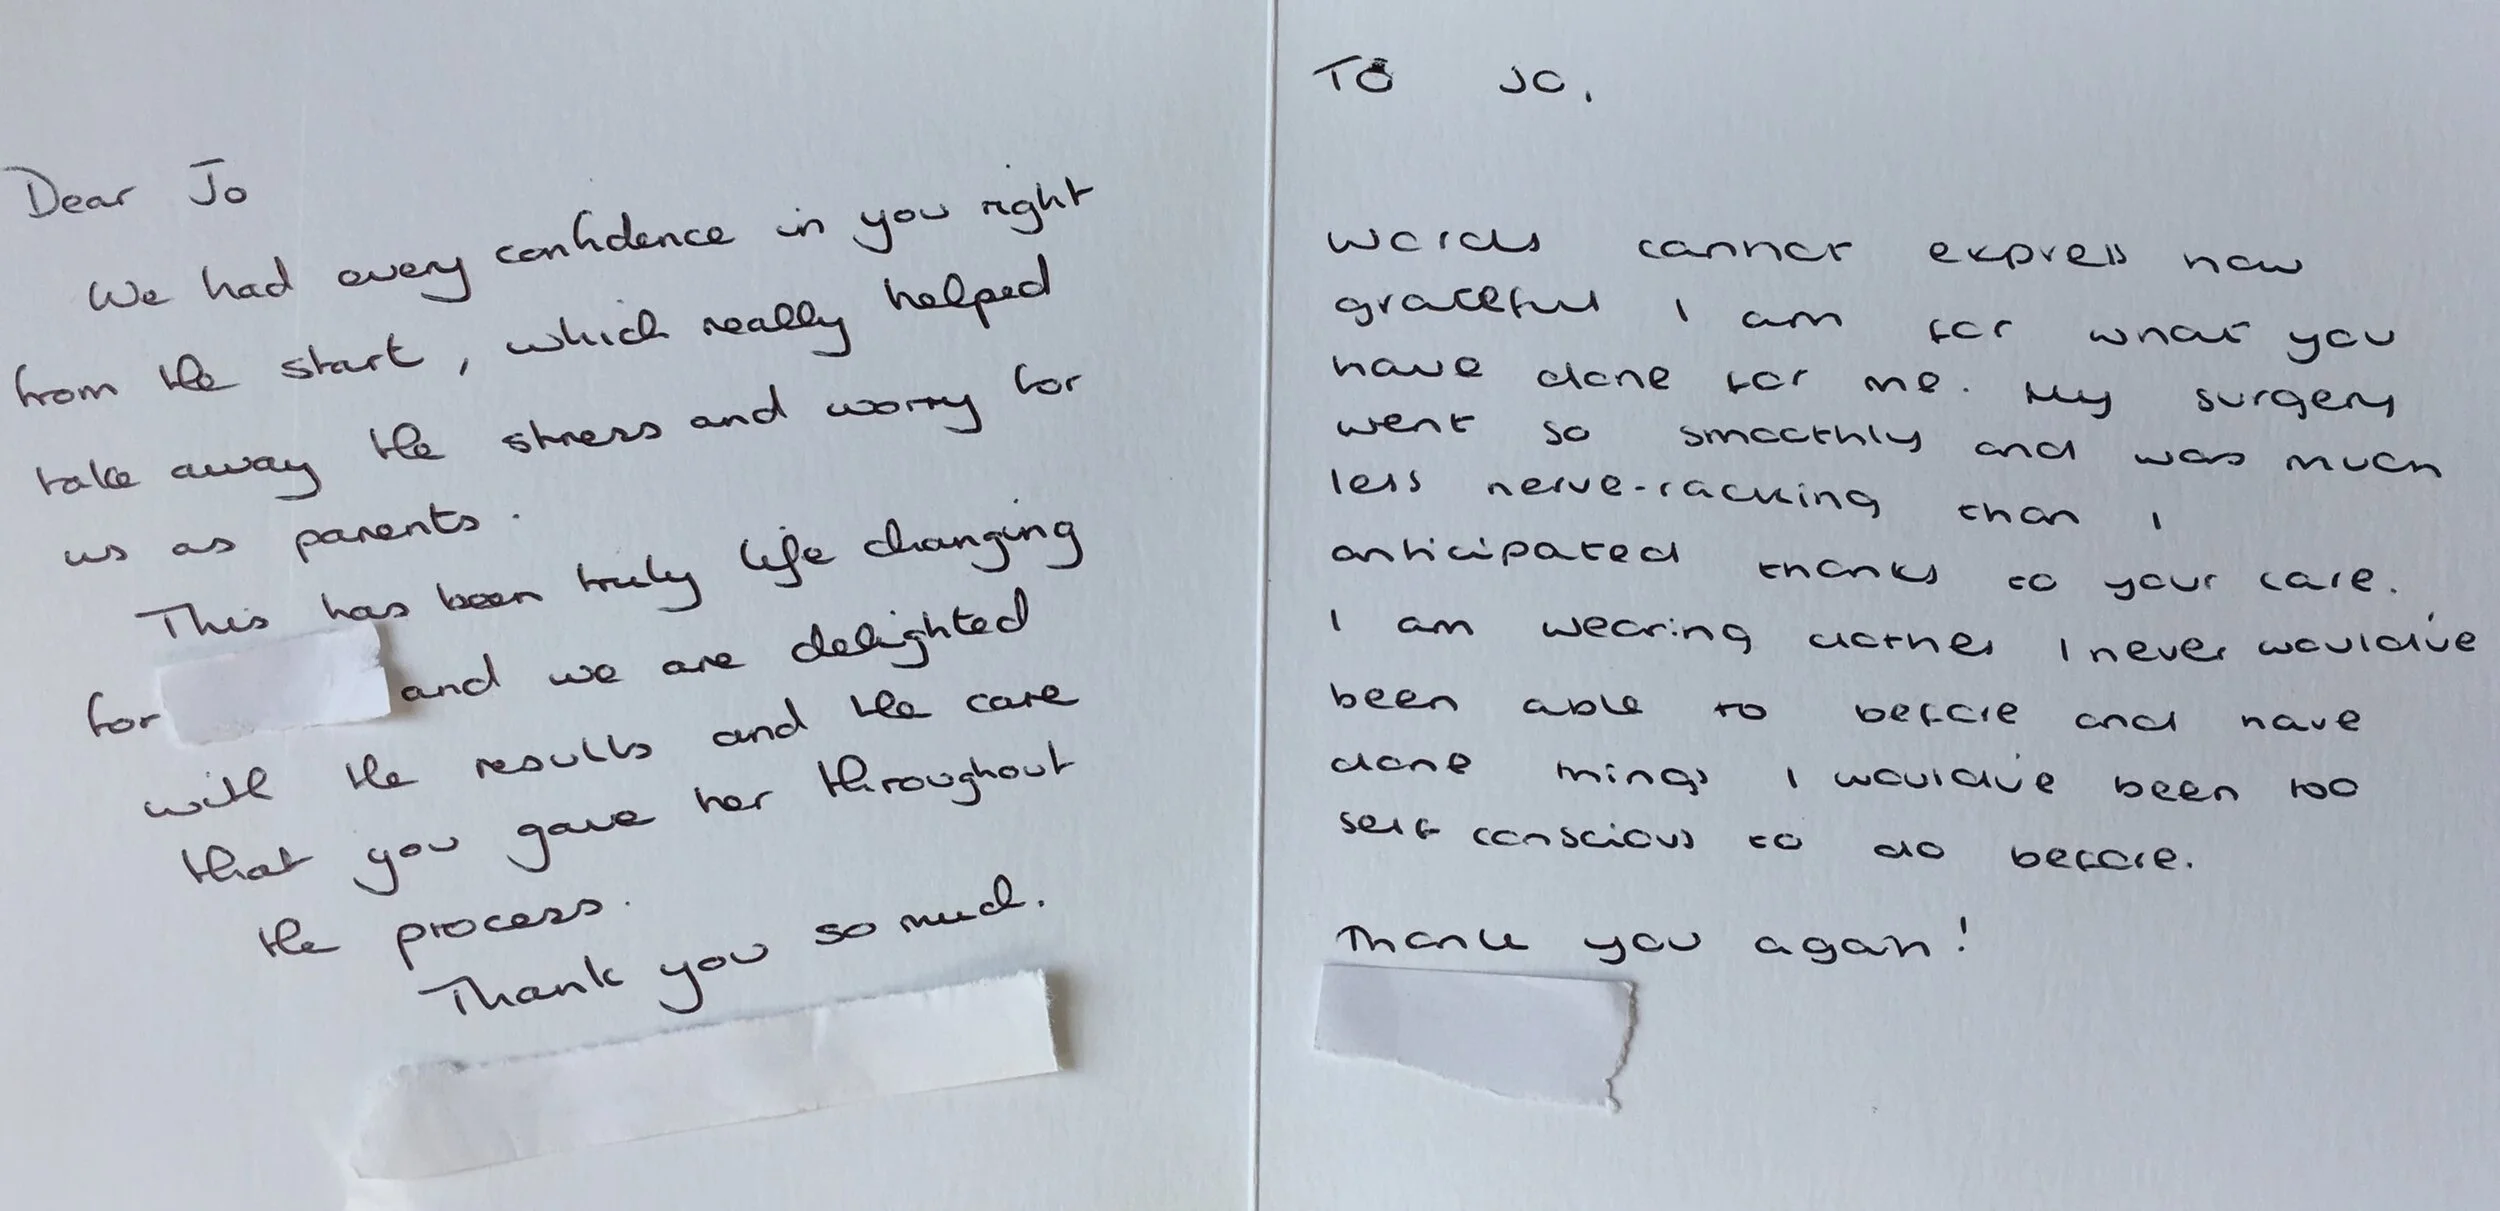 Dear Jo
We had every confidence in you right
from the start, which really helped
take away the stress and worry for
us as parents.
This has been truly life changing
for and we are delighted
with the results and the care
that you gave her throughout
the process.
Thank you so much.
TO JO,
words cannot express how
grateful I am for what you
have done for me. My surgery
went so smoothly and was much
less nerve-racking than I
anticipated thanks to your care.
I am wearing clothes I never would've
been able to before and have
done things I would've been too
self conscious to do before.
Thank you again!